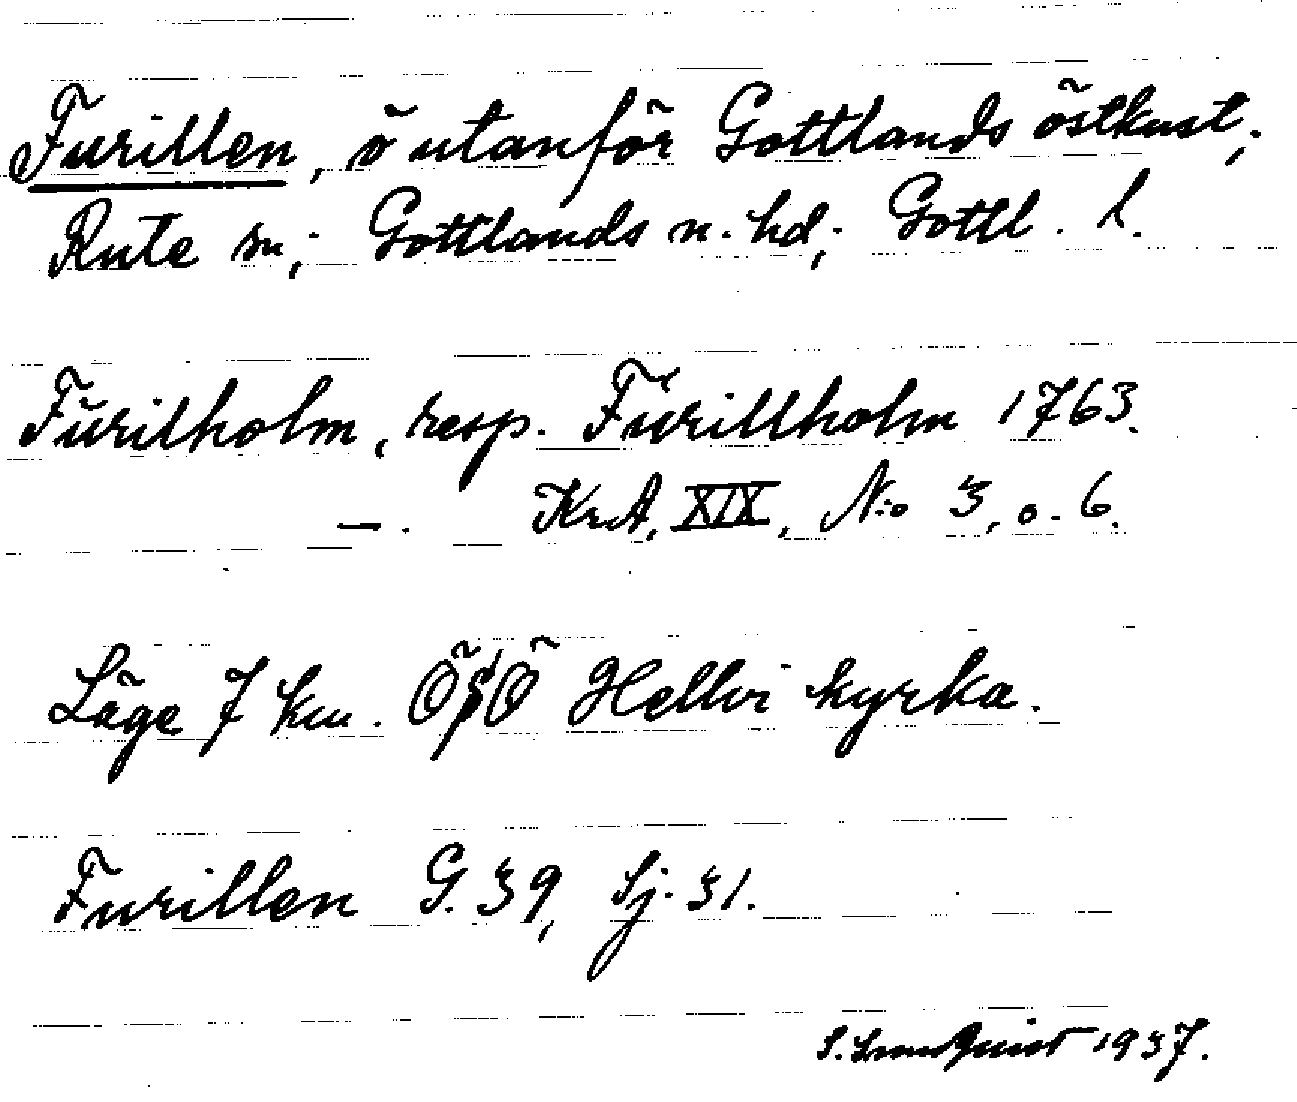 Furillen, ö utanför Gottlands östkust;
Rute sn; Gottlands n. hd; Gottl. l.
Furilholm, resp. Furillholm 1763.
—. KrA, XIX, N:o 3, o. 6.
Läge 7 km. ÖSÖ Hellvi kyrka.
Furillen G. 39, Sj. 31.
S. Lundquist 1937.